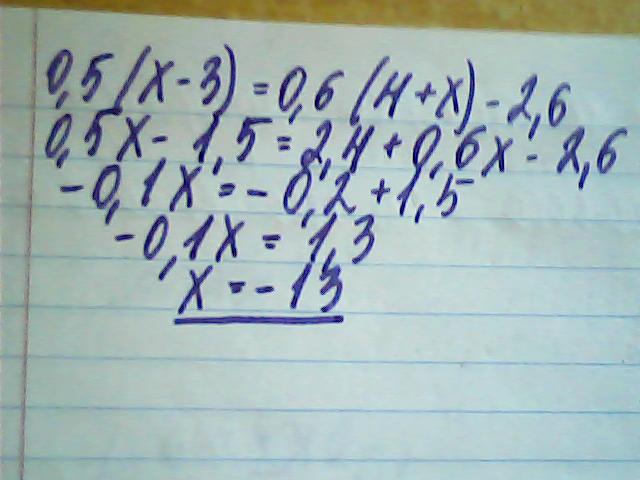 0,5(x-3)=0,6(4+x)-2,6
0,5x-1,5=2,4+0,6x-2,6
-0,1x=-0,2+1,5
-0,1x=1,3
x=-13